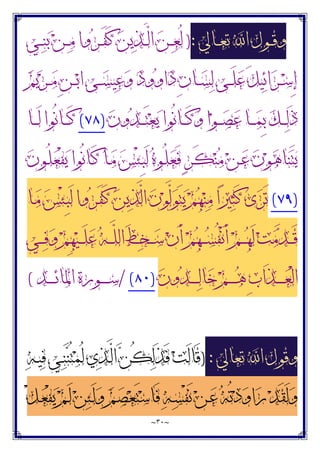 وقول الله تعالى : ( لُعِنَ الَّذِينَ كَفَرُوا مِنْ بَنِي
إِسْرَائِيلَ عَلَى لِسَانِ دَاوُودَ وَعِيسَى ابْنِ مَرْيَمَ
ذَلِكَ بِمَا عَصَوْا وَكَانُوا يَعْتَدُونَ (٧٨) كَانُوا لَا
يَتَنَاهَوْنَ عَنْ مُنْكَرٍ فَعَلُوهُ لَبِئْسَ مَا كَانُوا يَفْعَلُونَ
(٧٩) تَرَى كَثِيرًا مِنْهُمْ يَتَوَلَّوْنَ الَّذِينَ كَفَرُوا لَبِئْسَ مَا
قَدَّمَتْ لَهُمْ أَنْفُسُهُمْ أَنْ سَخِطَ اللَّهُ عَلَيْهِمْ وَفِي
الْعَذَابِ هُمْ خَالِدُونَ (٨٠) / سورة المائدة )
وقول الله تعالى : (قَالَتْ فَذَلِكُنَّ الَّذِي لُمْتُنَّنِي فِيهِ
وَلَقَدْ رَاوَدْتُهُ عَنْ نَفْسِهِ فَاسْتَعْصَمَ وَلَئِنْ لَمْ يَفْعَلْ
~٣٠~